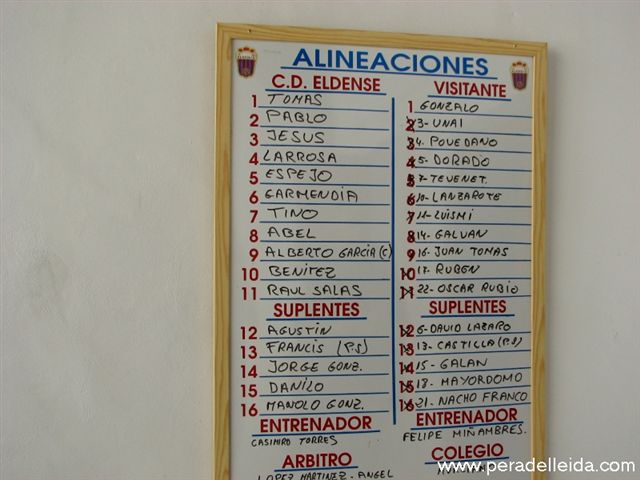 ALINEACIONES
C.D. ELDENSE
1 TOMAS
2 PABLO
3 JESUS
4 LARROSA
5 ESPEJO
6 GARMENDIA
7 TINO
8 ABEL
9 ALBERTO GARCIA (C)
10 BENITEZ
11 RAUL SALAS
SUPLENTES
12 AGUSTIN
13 FRANCIS (P.S)
14 JORGE GONZ.
15 DANILO
16 MANOLO GONZ.
ENTRENADOR
CASIMIRO TORRES
ARBITRO
LOPEZ MARTINEZ - ANGEL
VISITANTE
1 GONZALO
2 3- UNAI
3 4. POVEDANO
4 5- DORADO
5 7- TEVENET.
6 10- LANZAROTE
7 11- LUISMI
8 14- GALVAN
9 16- JUAN TOMAS
10 17- RUBEN
11 22- OSCAR RUBIO
SUPLENTES
12 6- DAVID LAZARO
13 13- CASTILLA (P.S)
14 15- GALAN
15 18- MAYORDOMO
16 21- NACHO FRANCO
ENTRENADOR
FELIPE MIÑAMBRES.
COLEGIO
www.peradelleida.com